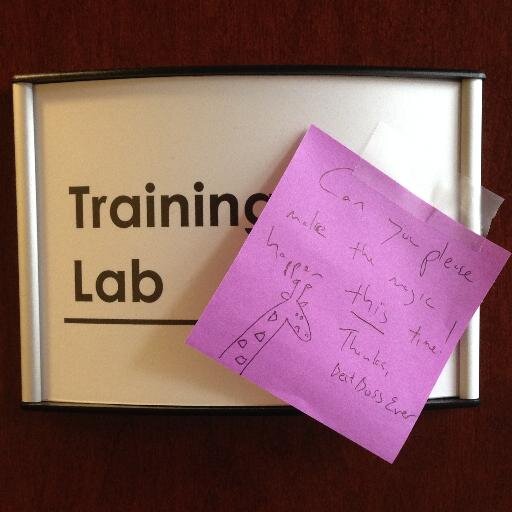 Training
Lab
Can you please
make the magic
happen this time!
Thanks,
BestBossEver